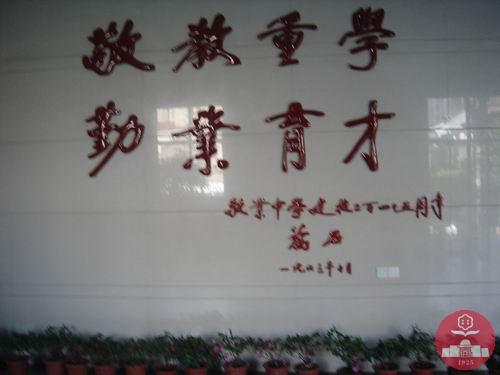 敬教重學
勤業育才
敬業中學建校二百一十五周年
一九六三年十月
1925